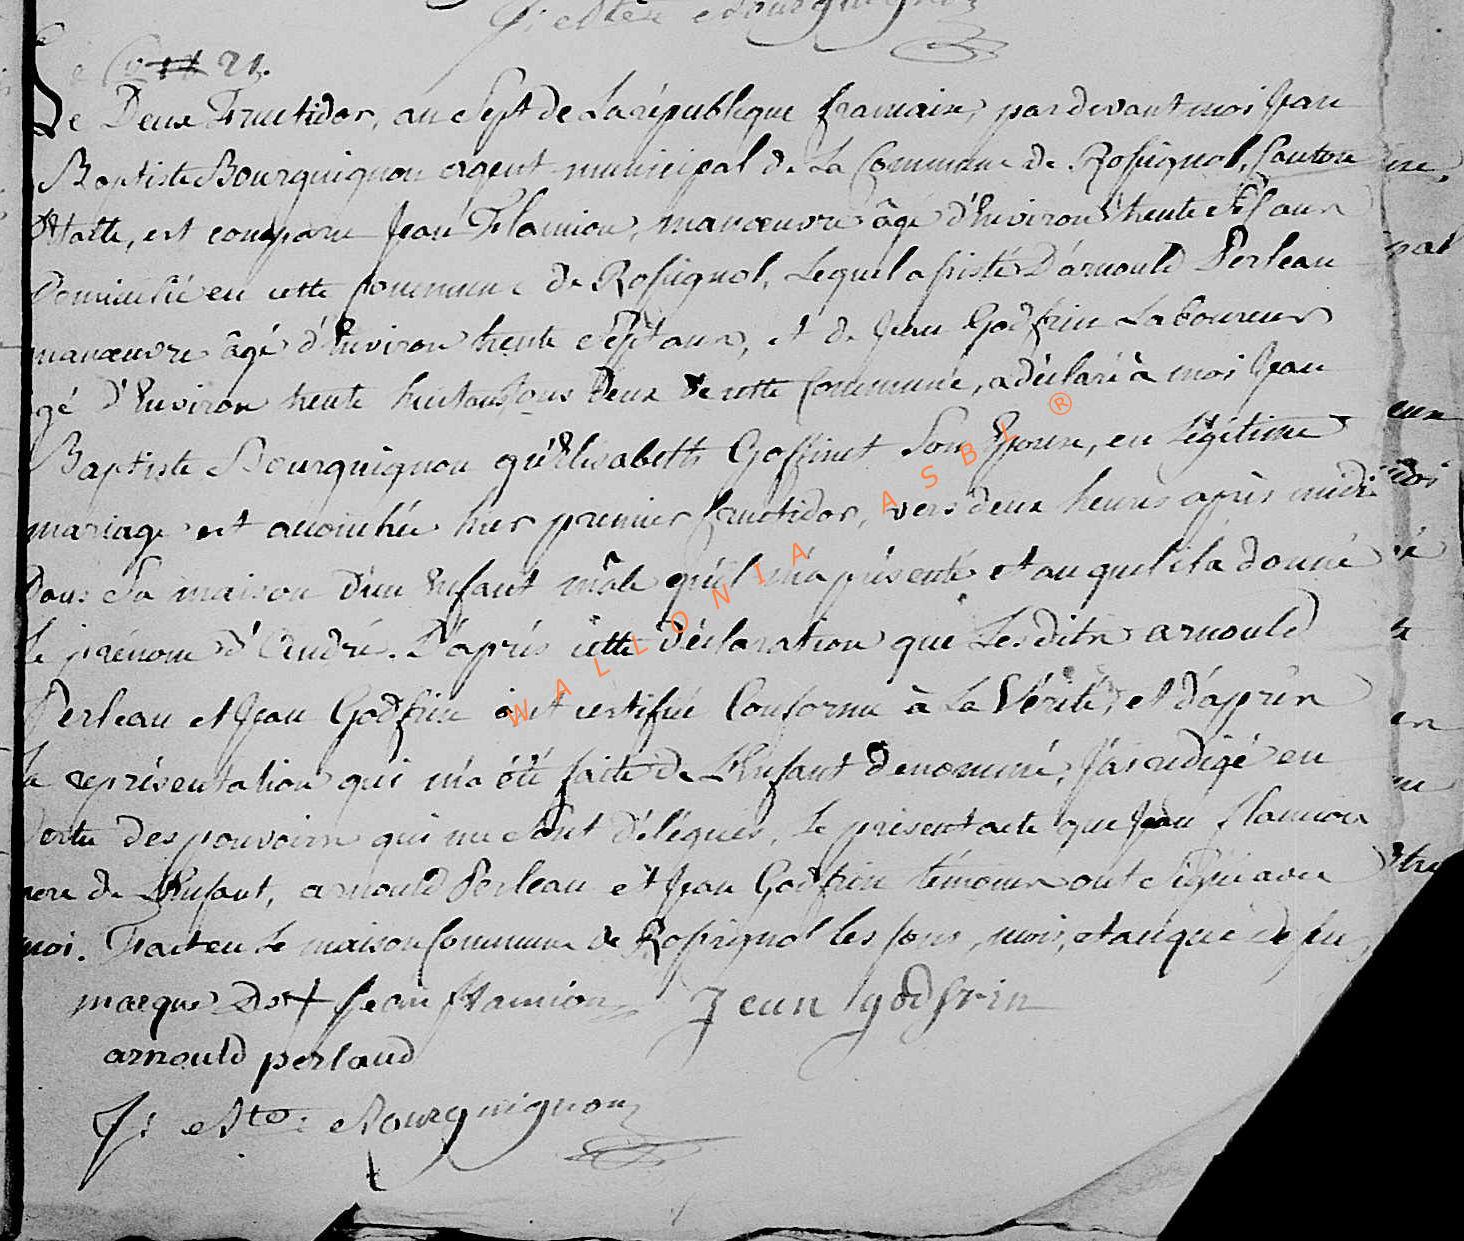 J: Bte Bourguignon
21.
Le Deux Fructidor, an Sept de La république francaise, pardevant moi Jean
Baptiste Bourguignon agent municipal de La Commune de Rossignol, Canton
D'Etalle, est comparu Jean Flamion, manœuvre âgé d'Environ trente ans
Domicilié en cette Commune de Rossignol, Lequel assisté D'arnould Perleau
manœuvre âgé d'Environ trente Sept ans, et de Jean Godfrin Laboureur
âgé d'Environ trente huit ans tous Deux De cette Commune, a déclaré à moi Jean
Baptiste Bourguignon qu'Elisabeth Goffinet Son Epouse, en Légitime
mariage est accouchée hier premier fructidor, vers deux heures après midi
Dans Sa maison D'un Enfant mâle qu'il m'a présenté et auquel il a donné
le prénom d'André. D'après cette Déclaration que Lesdits arnould
Perleau et Jean Godfrin ont certifié Conforme à La Vérité, et d'après
la représentation qui m'a été faite de L'Enfant Denommé, J'ai rédigé en
Vertu des pouvoirs qui me Sont délégués, le présent acte que Jean flamion
pere de L'Enfant, arnould Perleau et Jean Godfrin témoins ont Signé avec
moi. Fait en La maison Commune de Rossignol les jour, mois, et an que dessus
marque De + Jean flamion Jean godfrin
arnould perlaud
J: Bte: Bourguignon
WALLONIA ASBL ®